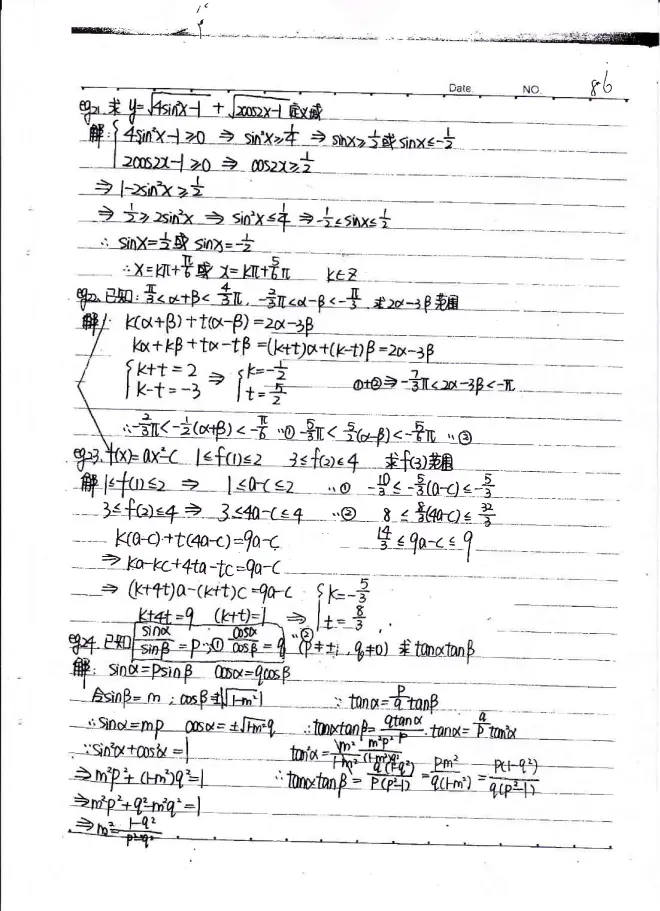 Date NO. 86
eg21. 求 y=√(4sin²x-1) + √(2cos2x-1) 定义域
解: { 4sin²x-1≥0 ⇒ sin²x≥1/4 ⇒ sinx≥1/2 或 sinx≤-1/2
2cos2x-1≥0 ⇒ cos2x≥1/2
⇒ 1-2sin²x≥1/2
⇒ 1/2≥2sin²x ⇒ sin²x≤1/4 ⇒ -1/2≤sinx≤1/2
∴ sinx=1/2 或 sinx=-1/2
∴x=kπ+π/6 或 x=kπ+5/6π k∈Z
eg22. 已知: π/3<α+β<4/3π, -2/3π<α-β<-π/3, 求2α-3β范围
解: k(α+β)+t(α-β)=2α-3β
kα+kβ+tα-tβ=(k+t)α+(k-t)β=2α-3β
{ k+t=2 ⇒ { k=-1/2
k-t=-3 t=5/2 ①+②⇒-7/3π<2α-3β<-π
∴-2/3π<-1/2(α+β)<-π/6 ..① -5/3π<5/2(α-β)<-5/6π ..②
eg23. f(x)=ax²-c 1≤f(1)≤2 3≤f(2)≤4 求f(3)范围
解 1≤f(1)≤2 ⇒ 1≤a-c≤2 ..① -10/3≤-5/3(a-c)≤-5/3
3≤f(2)≤4 ⇒ 3≤4a-c≤4 ..② 8≤8/3(4a-c)≤32/3
k(a-c)+t(4a-c)=9a-c 14/3≤9a-c≤9
⇒ka-kc+4ta-tc=9a-c
⇒(k+4t)a-(k+t)c=9a-c { k=-5/3
k+4t=9 (k+t)=1 ⇒ t=8/3
eg24. 已知 sinα/sinβ=p ..① cosα/cosβ=q ..② (p≠±1, q≠0) 求tanαtanβ
解: sinα=psinβ cosα=qcosβ
令sinβ=m; cosβ=±√(1-m²) ∵tanα=p/q tanβ
∴sinα=mp cosα=±√(1-m²)q ∴tanαtanβ=qtanα/p·tanα=q/p tan²α
∵sin²α+cos²α=1 tan²α=m²p²/(1-m²)q²
⇒m²p²+(1-m²)q²=1 ∴tanαtanβ=q(1-q²)/p(p²-1)=pm²/q(1-m²)=p(1-q²)/q(p²-1)
⇒m²p²+q²-m²q²=1
⇒m²=1-q²/p²-q²